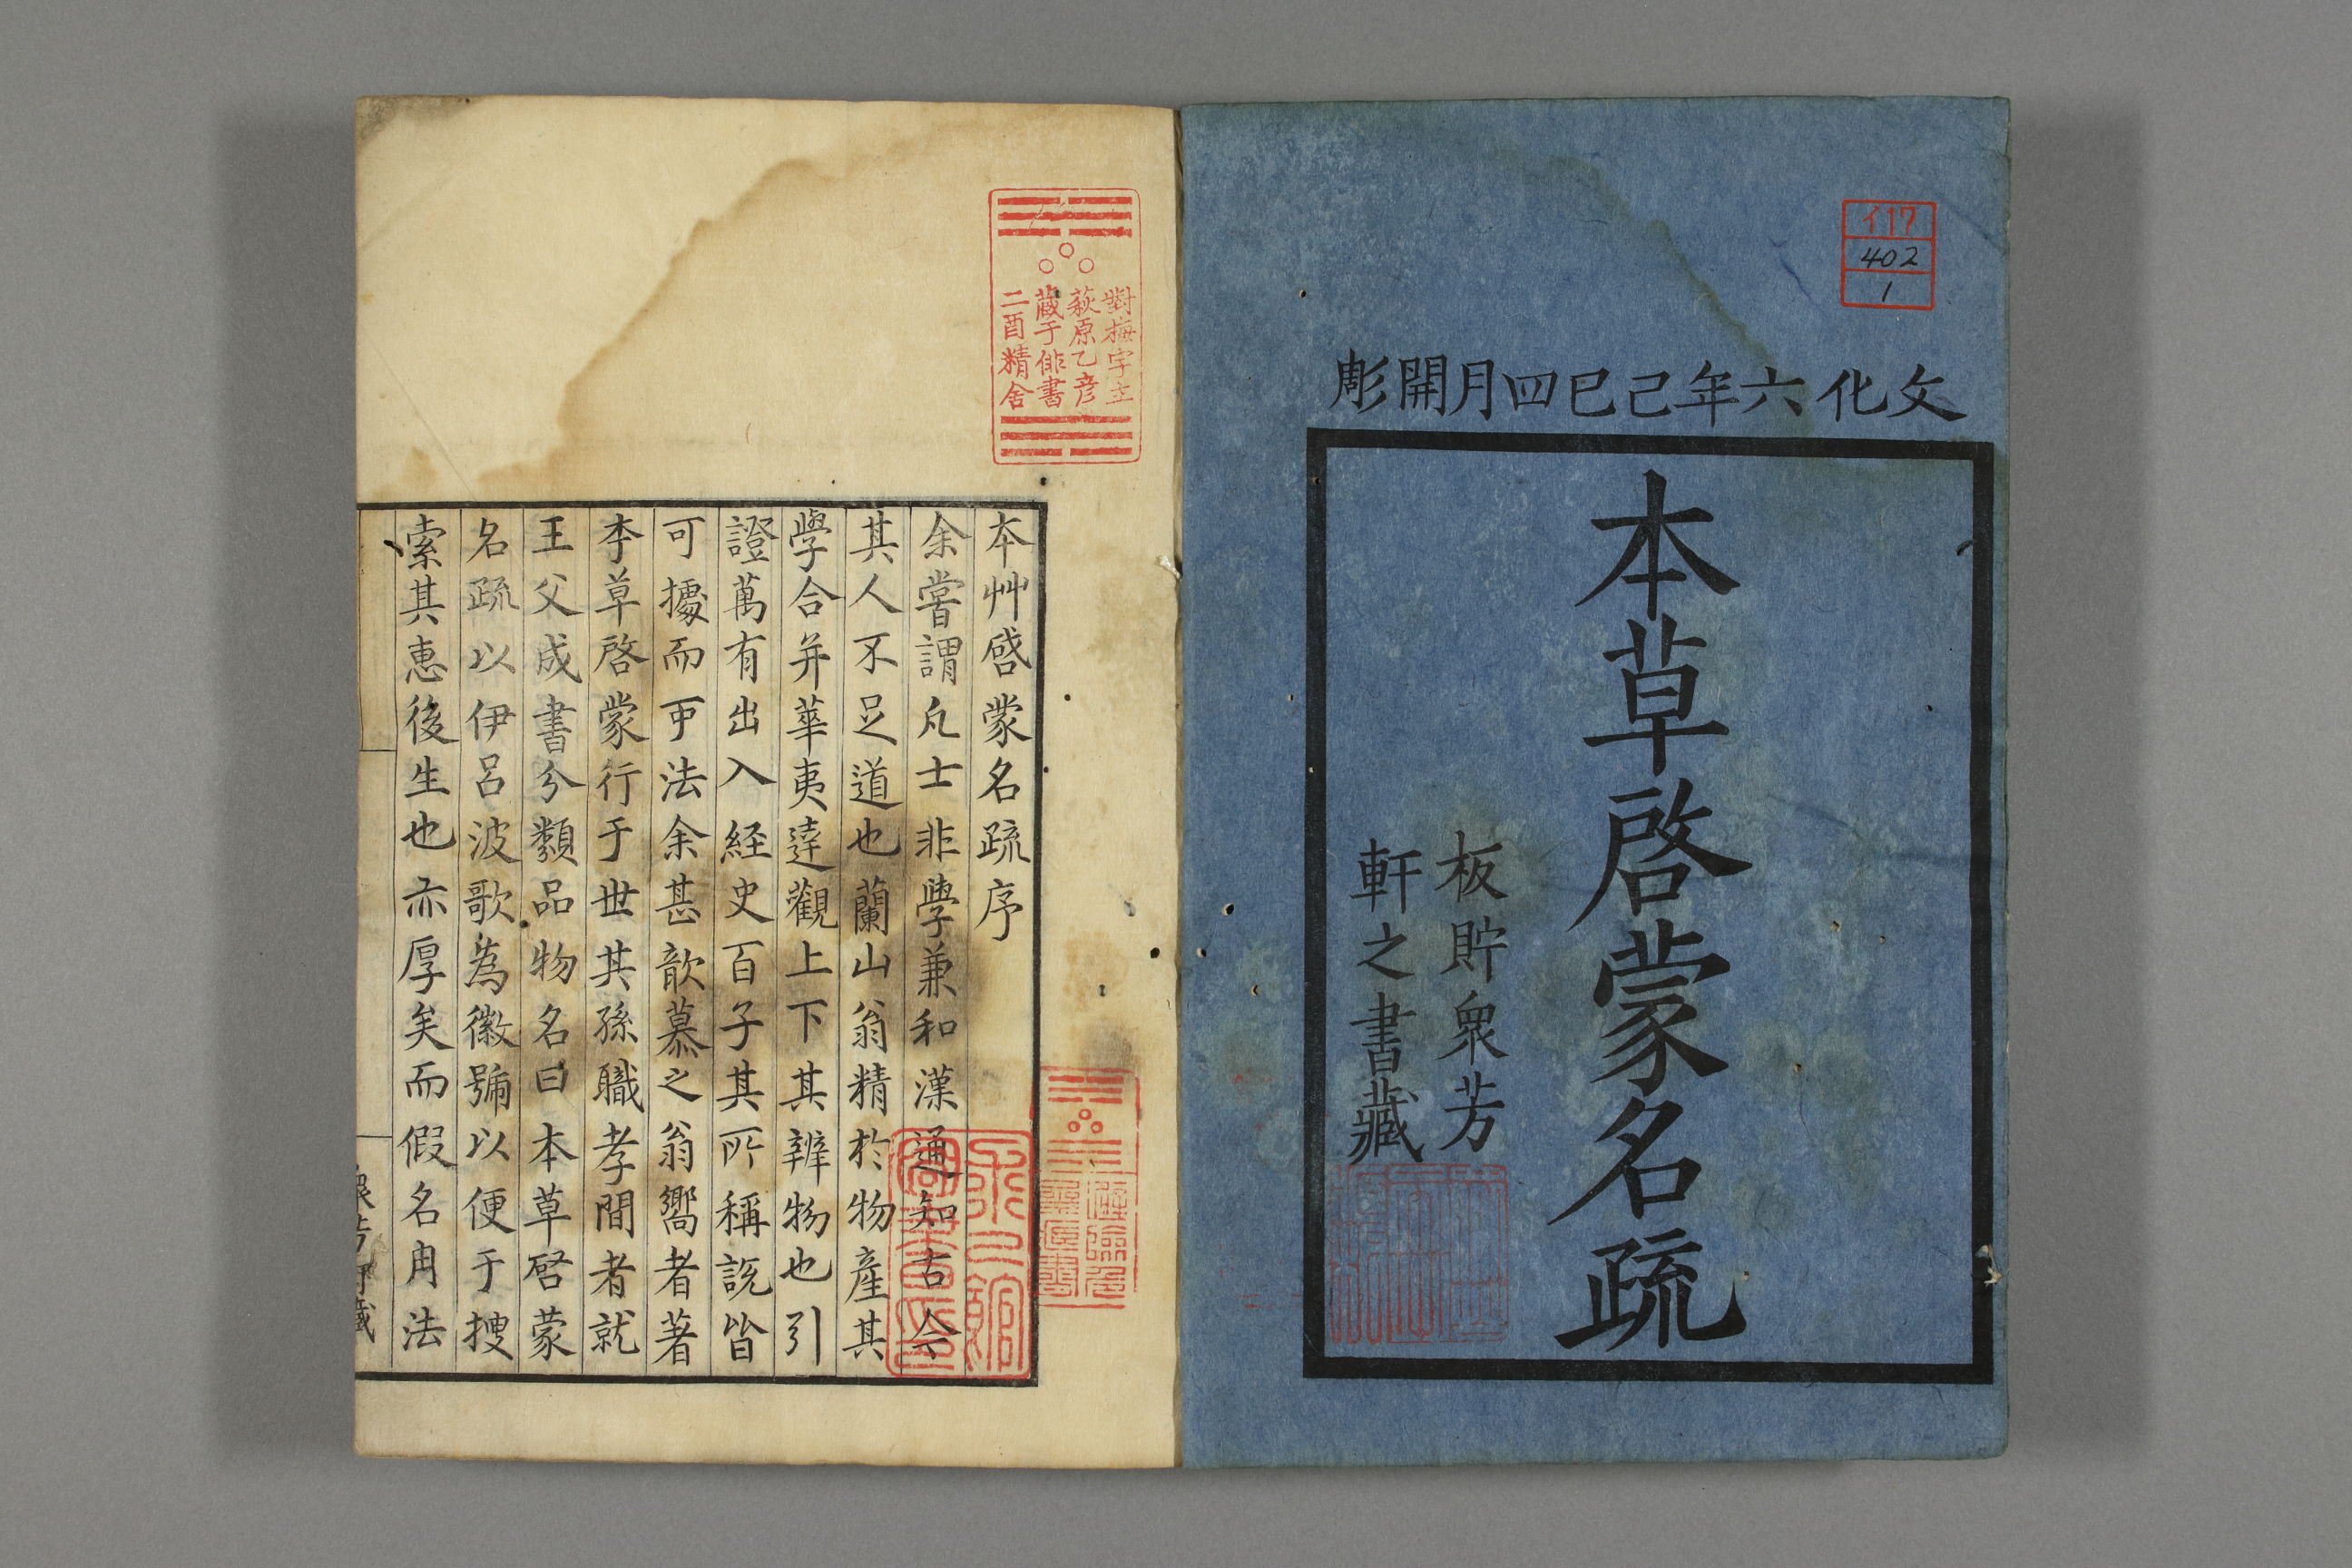 イ17
402
1
文化六年己巳四月開彫
本草啓蒙名疏
板貯衆芳
軒之書藏
對梅宇主
萩原乙彦
蔵于俳書
二酉精舍
本艸啓蒙名疏序
余嘗謂凡士非學兼和漢通知古今
其人不足道也蘭山翁精於物產其
學合并華夷達觀上下其辨物也引
證萬有出入経史百子其所稱説皆
可據而可法余甚歆慕之翁嚮者著
本草啓蒙行于世其孫職孝間者就
王父成書分類品物名曰本草啓蒙
名疏以伊呂波歌為徽號以便于搜
索其惠後生也亦厚矣而假名用法